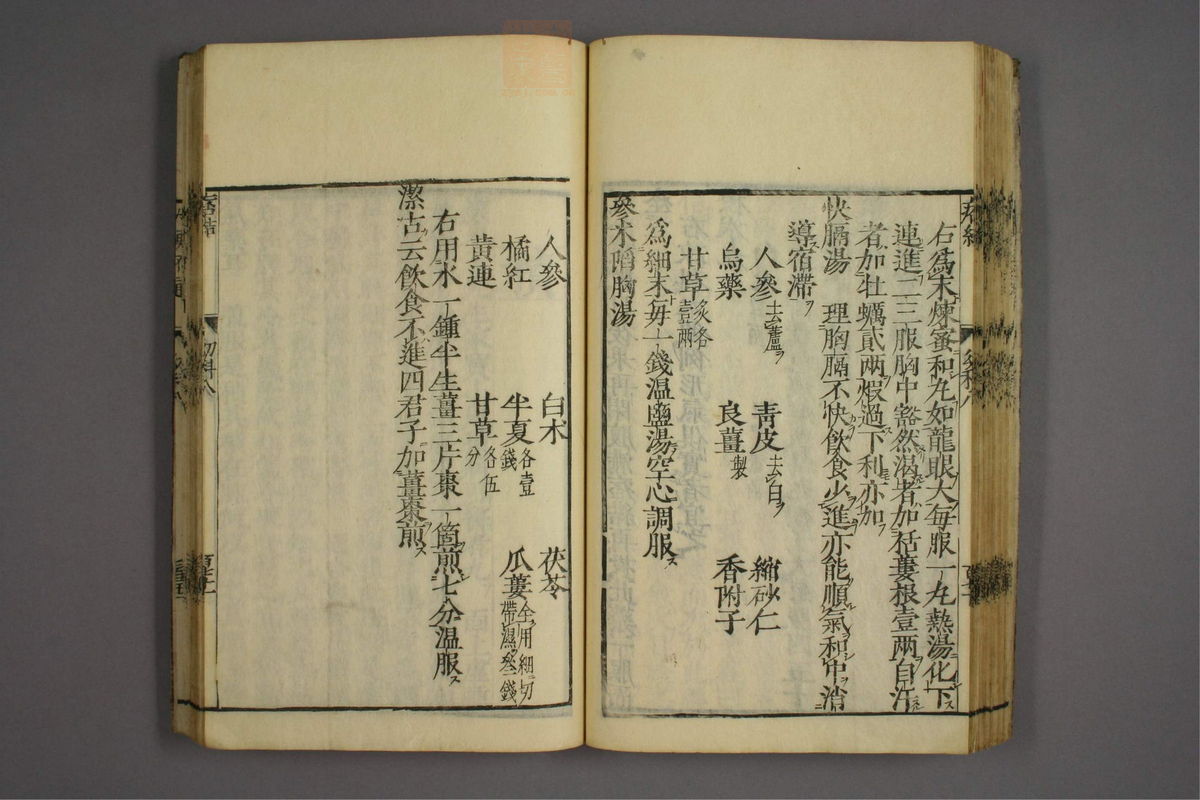 右爲末煉蜜和丸如龍眼大每服一丸熱湯化下ス
連進二三服胸中豁然渴者加栝蔞根壹两自汗
者加牡蠣貳两煆過下利亦加
快膈湯　理胸膈不快飲食少進亦能順氣和中消
導宿滯ヲ
人參去蘆ヲ　青皮去白ヲ　縮砂仁
烏藥　良薑製　香附子
甘草炙各壹兩
爲細末每一錢温鹽湯空心調服ス
參朮陷胸湯
人參　白朮　茯苓
橘紅　半夏各壹錢　瓜蔞全用細切帶濕叄錢
黃連　甘草各伍分
右用水一鍾半生薑三片棗一箇煎七分温服ス
潔古云飲食不進四君子加薑棗煎ス